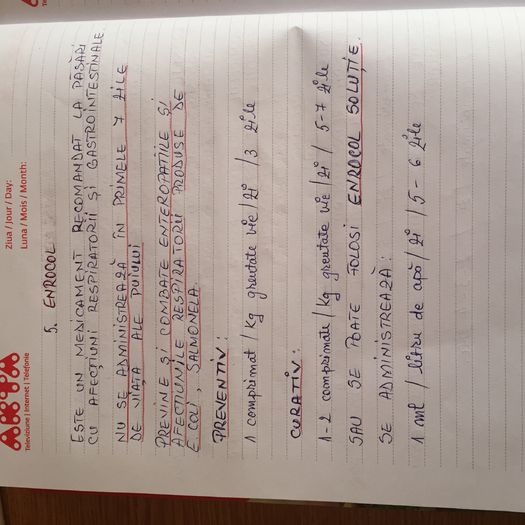 Ziua / Jour / Day:
Luna / Mois / Month:
Televiziune | Internet | Telefonie
5. ENROCOL
ESTE UN MEDICAMENT RECOMANDAT LA PĂSĂRI
CU AFECȚIUNI RESPIRATORII ȘI GASTROINTESTINALE.
NU SE ADMINISTREAZĂ ÎN PRIMELE 7 ZILE
DE VIAȚA ALE PUIULUI
PREVINE ȘI COMBATE ENTEROPATIILE ȘI
AFECȚIUNILE RESPIRATORII PRODUSE DE
E COLI, SALMONELA.
PREVENTIV:
1 comprimat / kg greutate vie / zi / 3 zile
CURATIV:
1-2 comprimate / kg greutate vie / zi / 5-7 zile
SAU SE POATE FOLOSI ENROCOL SOLUȚIE.
SE ADMINISTREAZĂ:
1 ml / litru de apă / zi / 5-6 zile